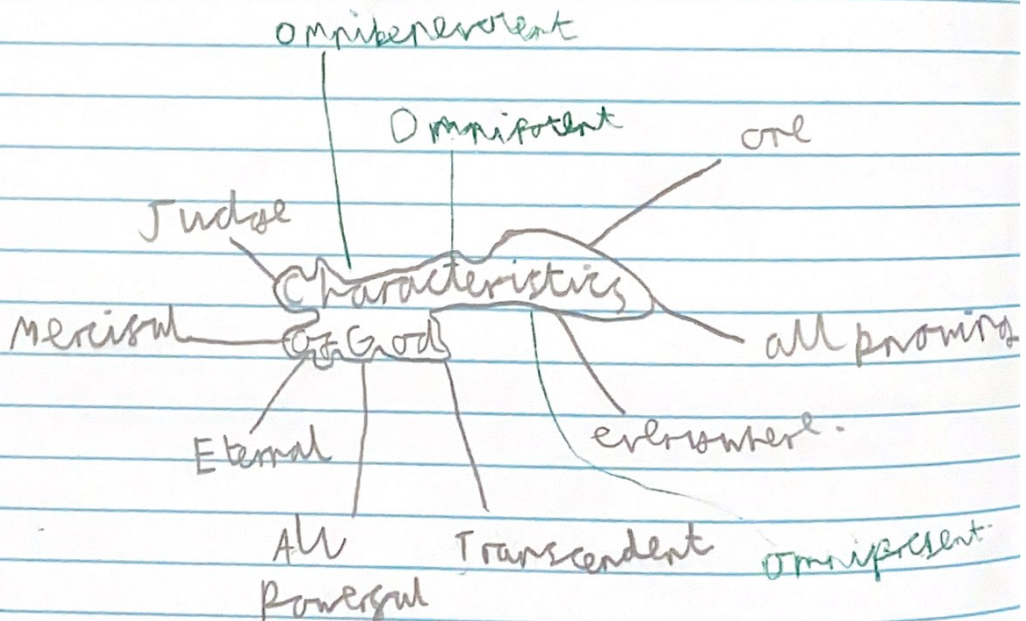 Omnibenevolent
Omnipotent
one
Judge
Characteristics
Of God
Merciful
all knowing
everywhere.
Eternal
All
Powerful
Transcendent
omnipresent.